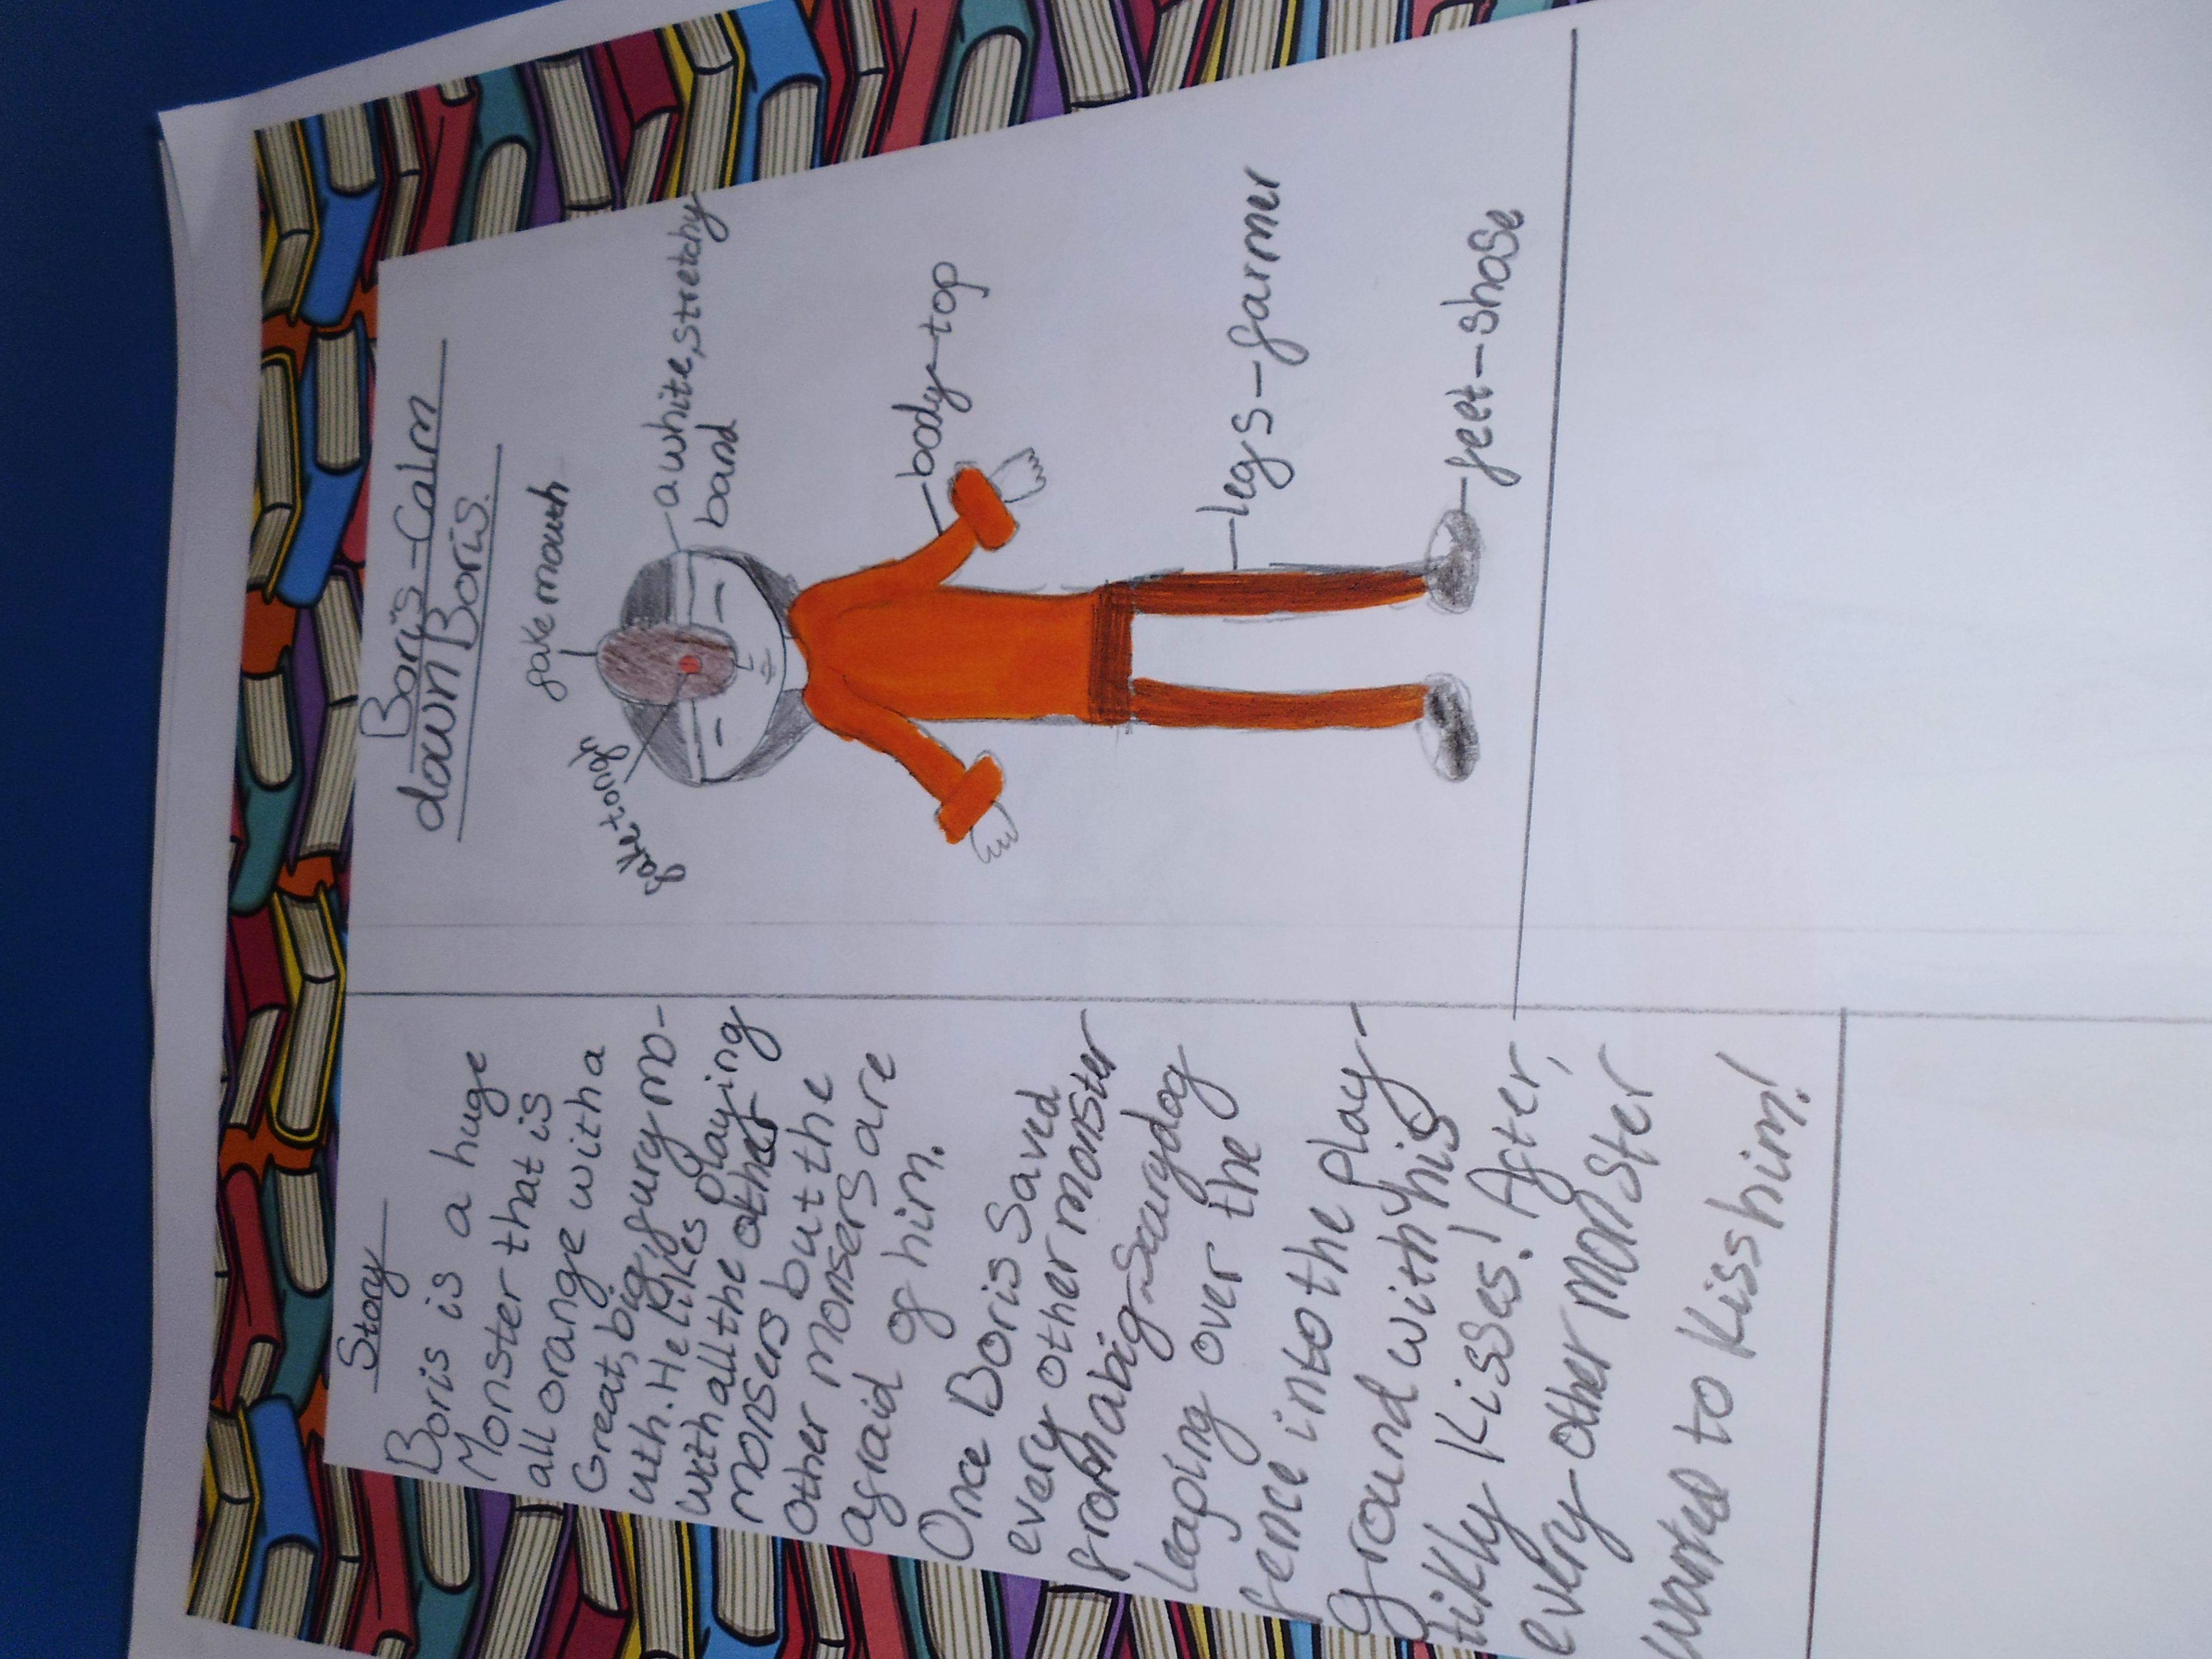 Story
Boris is a huge
Monster that is
all orange with a
Great, big, fury mo-
uth. He likes playing
with all the other
monsers but the
other monsers are
afraid of him.
Once Boris saved
every other monster
from a big scury dog
leaping over the
fence into the play-
ground with his
tikly kisses! After,
every other monster
wanted to kiss him!
Boris-Calm
down Boris.
fake mouth
fake tongh
a white, stretchy
band
body-top
legs-farmer
feet-shose